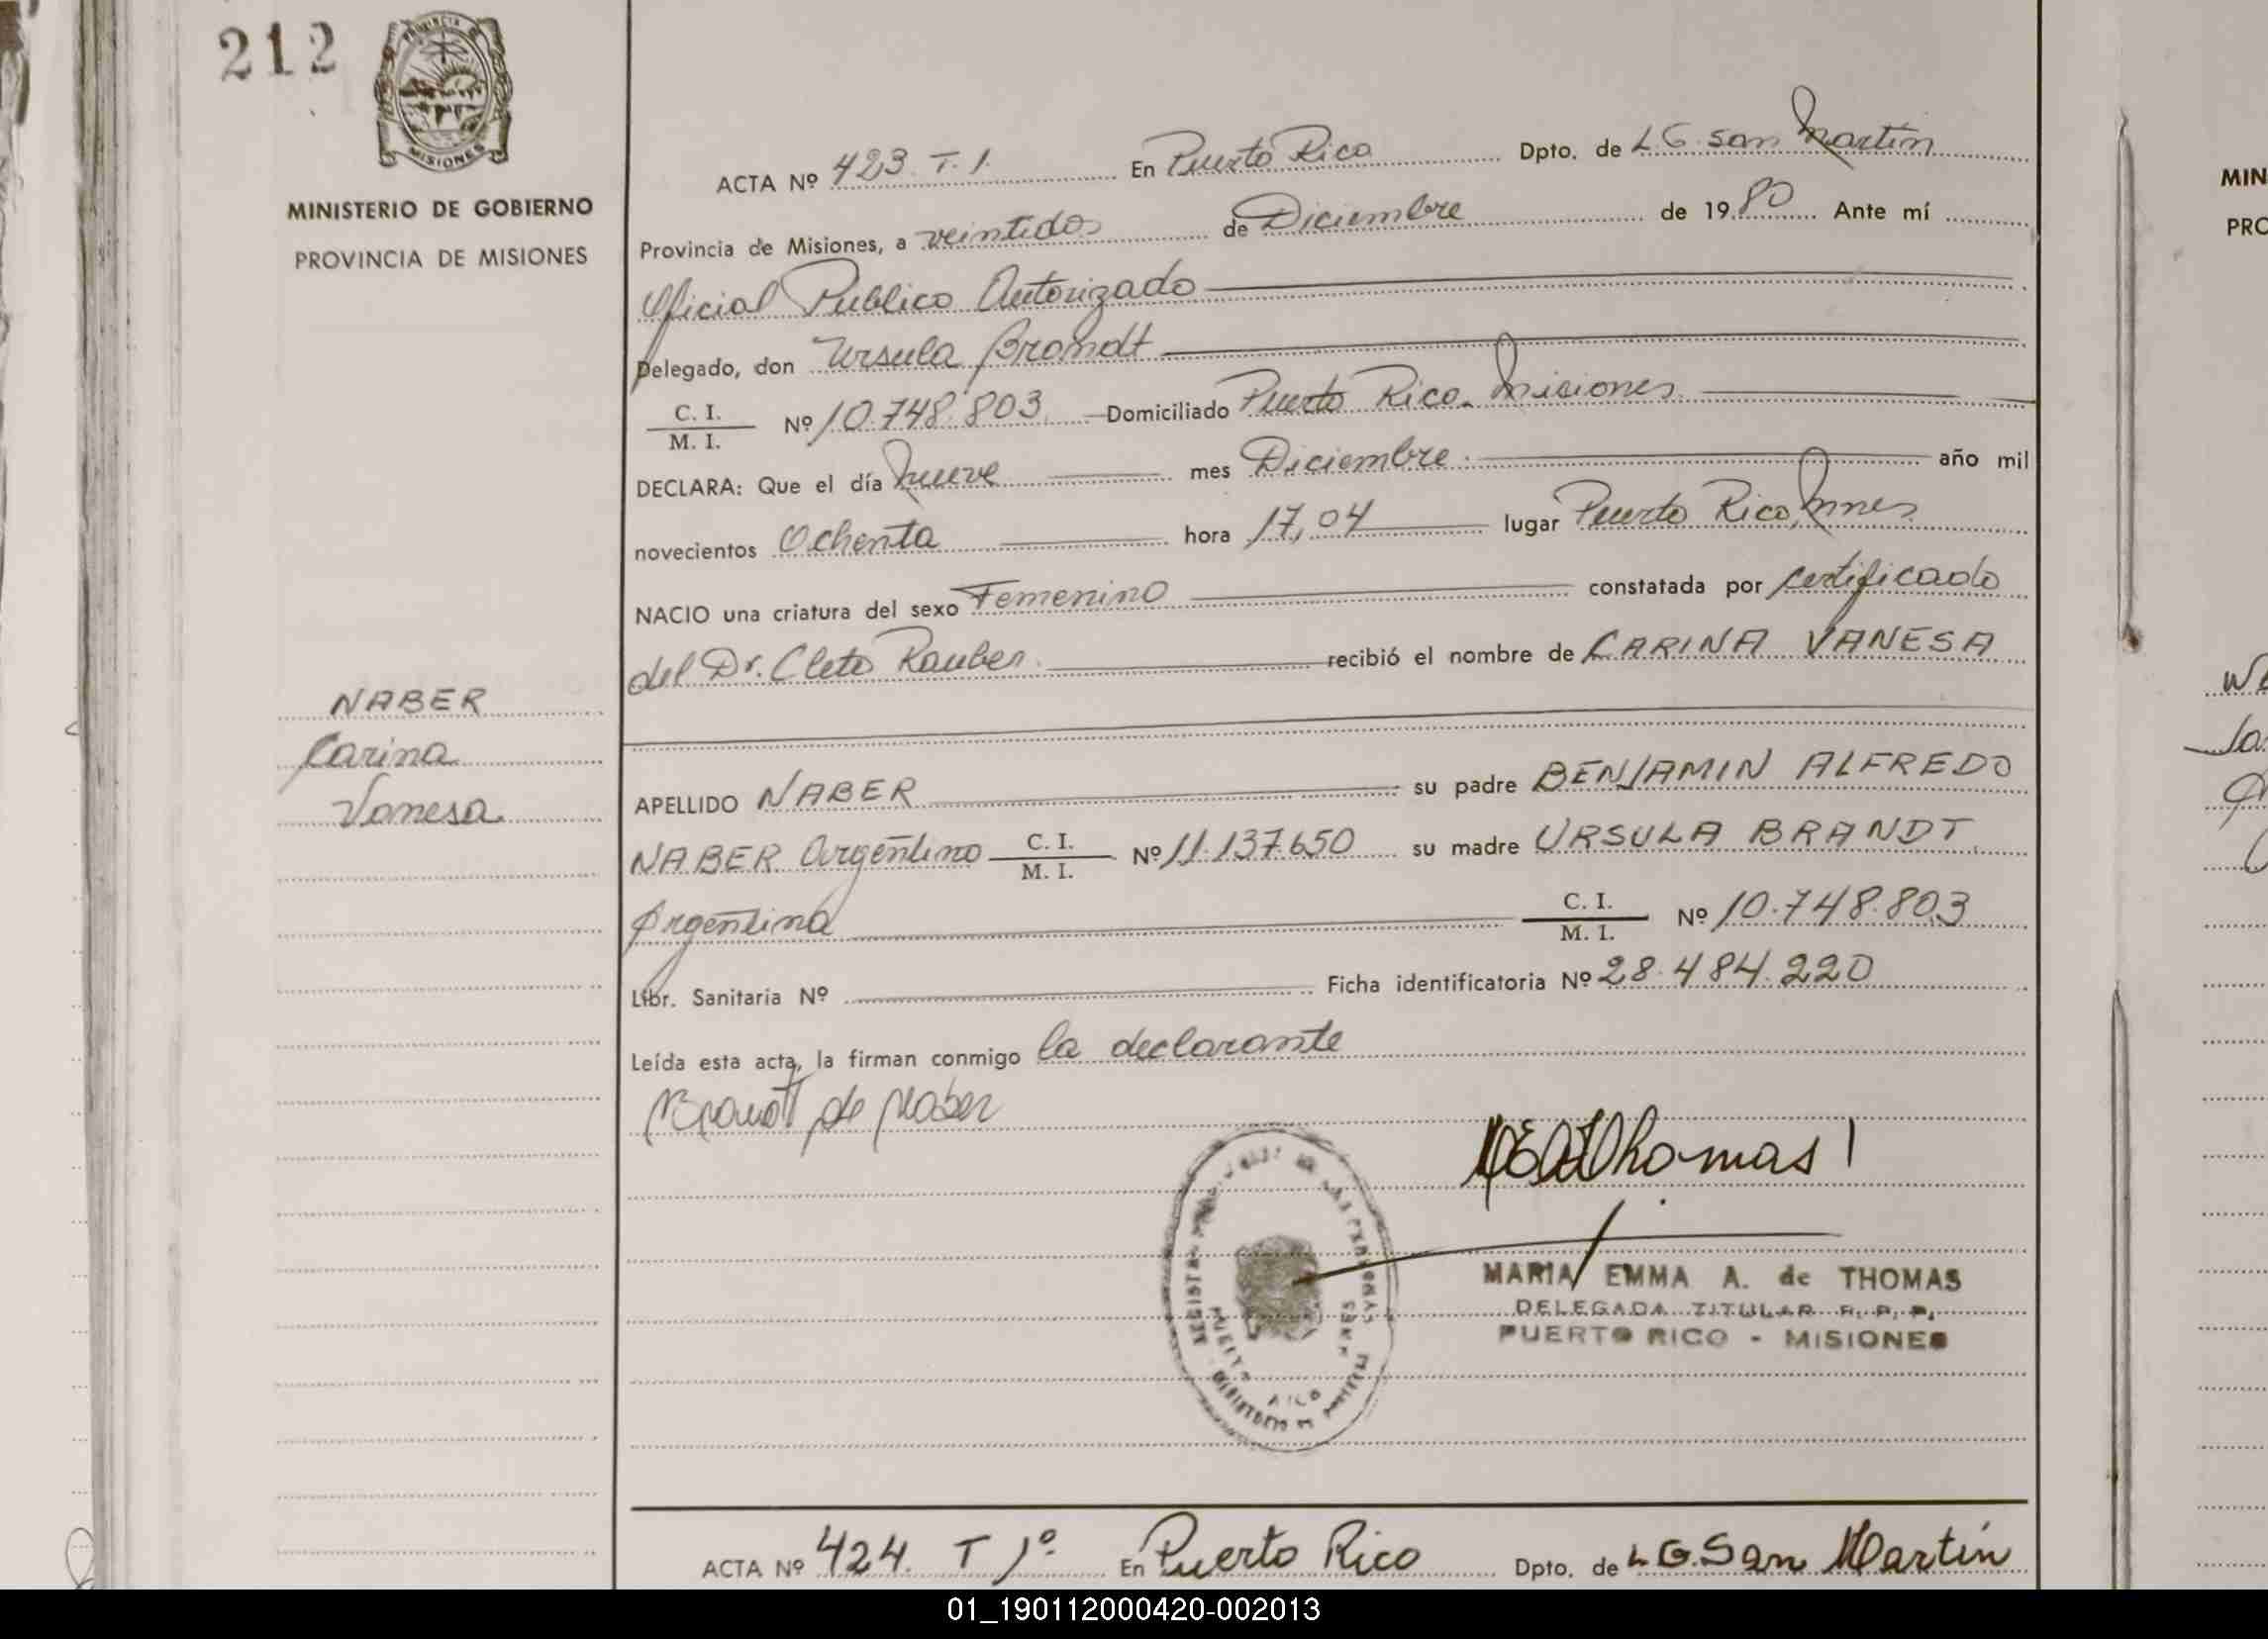 212
PROVINCIA
MISIONES
MINISTERIO DE GOBIERNO
PROVINCIA DE MISIONES
NABER
Carina
Vanesa
ACTA Nº 423. T. 1. En Puerto Rico Dpto. de L. G. San Martín
Provincia de Misiones, a veintidos de Diciembre de 1980 Ante mí
Oficial Publico Autorizado
Delegado, don Ursula Brandt
C. I.
M. I. Nº 10.748.803. Domiciliado Puerto Rico. Misiones
DECLARA: Que el día nueve mes Diciembre. año mil
novecientos Ochenta hora 17,04 lugar Puerto Rico, Mnes.
NACIO una criatura del sexo Femenino constatada por certificado
del Dr. Cleto Rauber. recibió el nombre de CARINA VANESA
APELLIDO NABER su padre BENJAMIN ALFREDO
NABER Argentino C. I.
M. I. Nº 11.137.650 su madre URSULA BRANDT.
Argentina C. I.
M. I. Nº 10.748.803
Libr. Sanitaria Nº Ficha identificatoria Nº 28.484.220
Leída esta acta, la firman conmigo la declarante
Brandt de Naber
Thomas
MARIA EMMA A. de THOMAS
DELEGADA TITULAR R. P. P.
PUERTO RICO - MISIONES
PUERTO RICO
ACTA Nº 424. T 1º. En Puerto Rico Dpto. de L G. San Martín
01_190112000420-002013